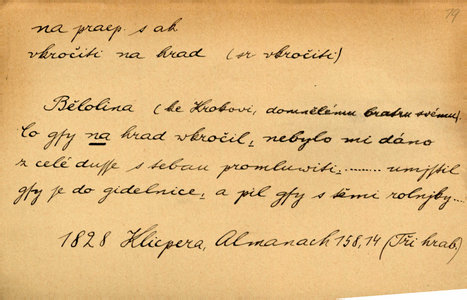 19
na praep. s ak
vkročiti na hrad (sr vkročiti)
Bělolina (ke Krobovi, domnělému bratru svému).
Co gsy na hrad wkročil, nebylo mi dáno
z celé dusse s tebau promluwiti, ........ umjstil
gsy je do gidelnice, a pil gsy s těmi rolnjky ...
1828 Klicpera, Almanach 158,14 (Tři hrab.)